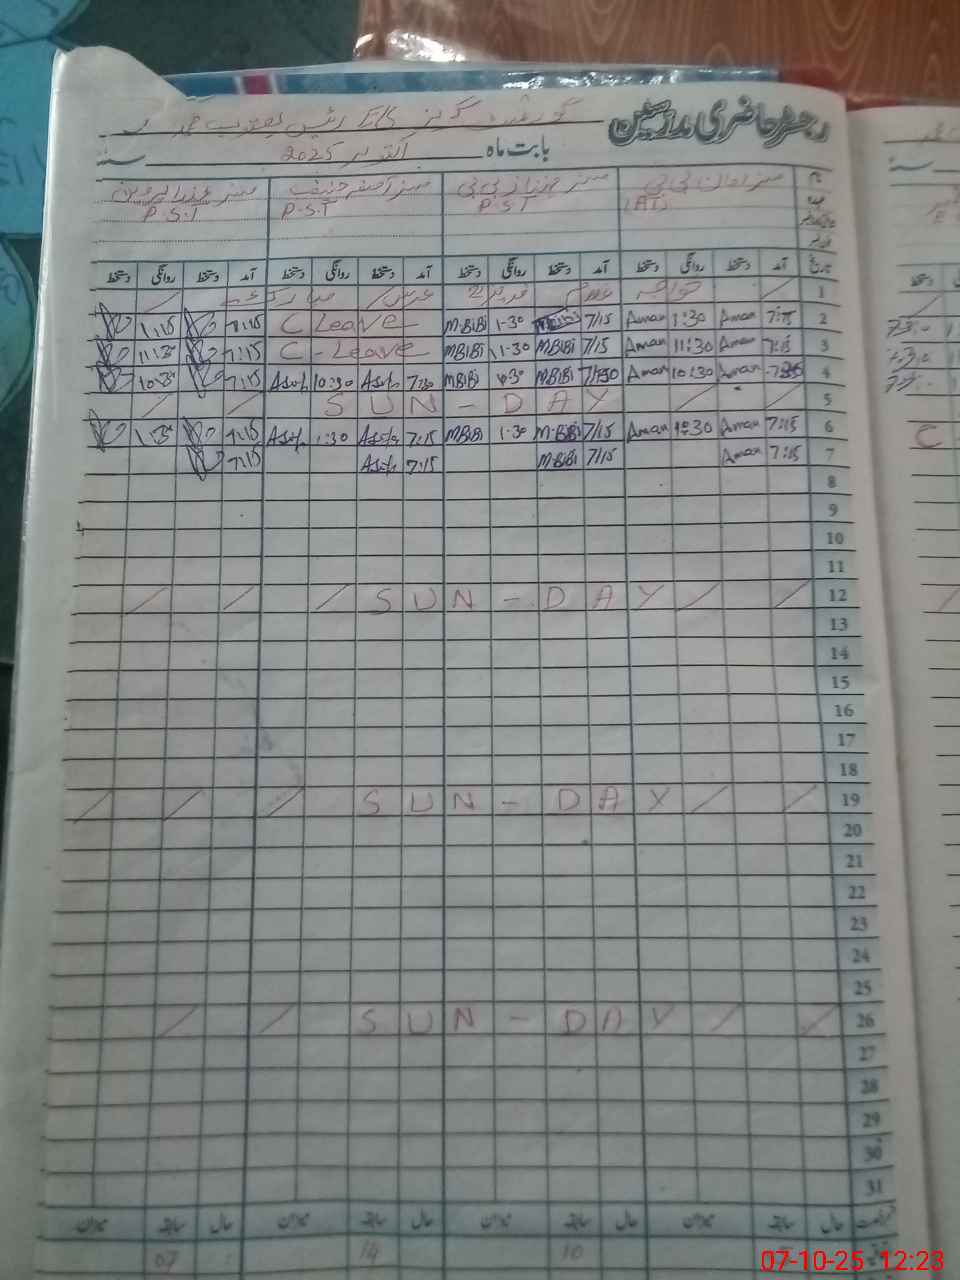 رجسٹر حاضری مدرسین
بابت ماہ اکتوبر 2025 سنہ
مسز امان بی بی مسز بی بی مسز آصفہ حنیف مسز عذرا پروین
(AT) P.S.T P.S.T P.S.T
تاریخ آمد دستخط روانگی دستخط آمد دستخط روانگی دستخط آمد دستخط روانگی دستخط آمد دستخط روانگی دستخط
1
2 7:15 Aman 1:30 Aman 7/15 1-30 M·BiBi C Leave 7:15 1:15
3 7:15 Aman 11:30 Aman 7/15 M·BiBi 11-30 M·BiBi C-Leave 7:15 11:30
4 Aman 10:30 Aman M·BiBi M·BiBi 7:30 Asifa 10:30 Asifa 7:15 10:30
5 SUN-DAY
6 7:15 Aman Aman 7/15 M·BiBi 1-30 M·BiBi 7:15 Asifa 1:30 Asifa 7:15 1:30
7 7:15 Aman 7/15 M·BiBi 7:15 Asifa 7:15
8
9
10
11
12 SUN-DAY
13
14
15
16
17
18
19 SUN-DAY
20
21
22
23
24
25
26 SUN-DAY
27
28
29
30
31
حال سابقہ میزان حال سابقہ میزان حال سابقہ میزان حال سابقہ میزان
10 14 07
07-10-25 12:23